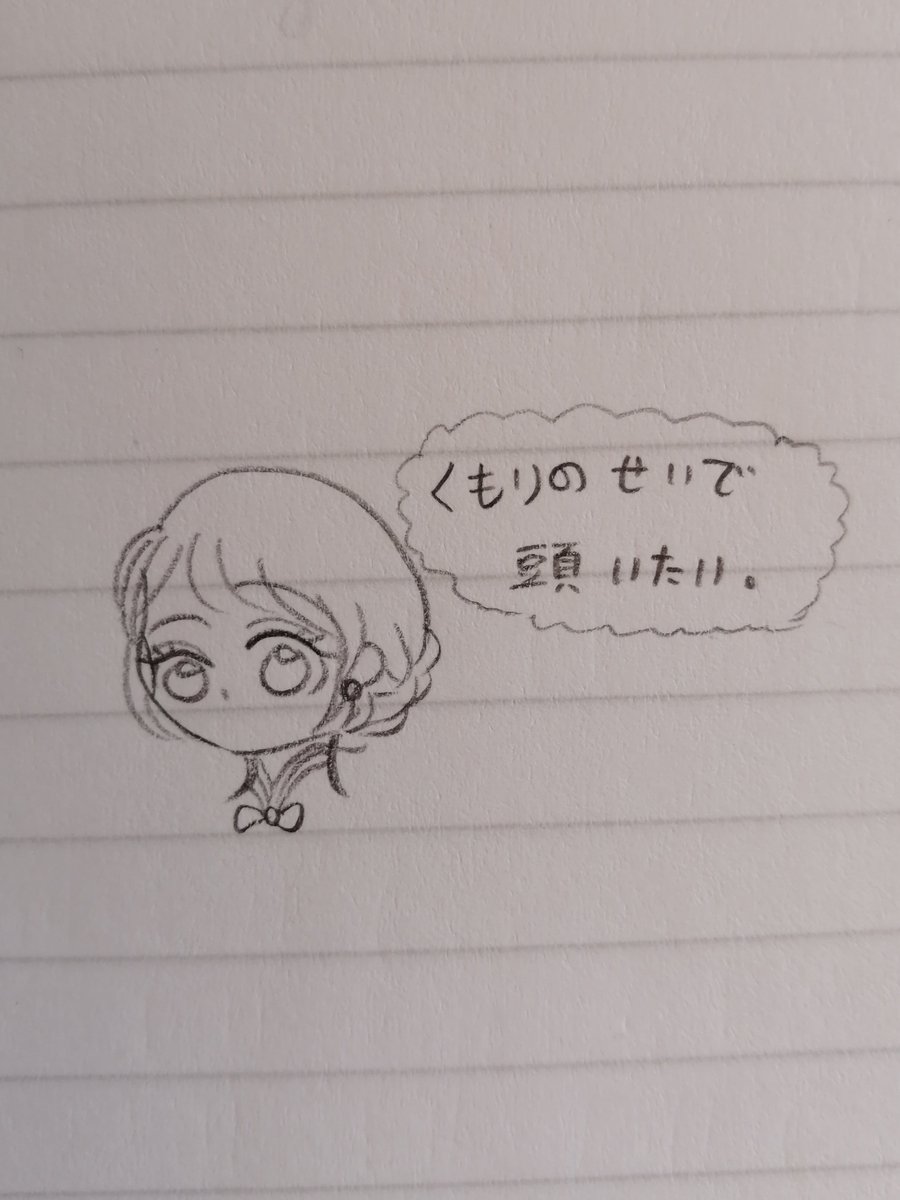 くもりのせいで
頭いたい。